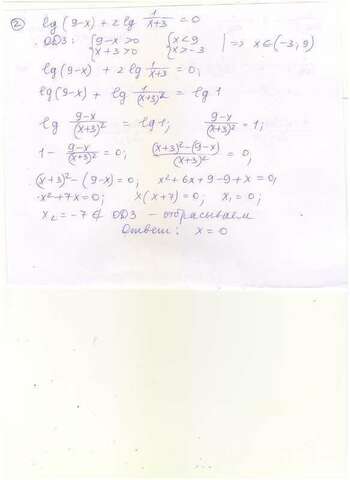 ② lg(9-x) + 2 lg 1/(x+3) = 0
ОДЗ: { 9-x>0 x+3>0 { x<9 x>-3 | => x∈(-3; 9)
lg(9-x) + 2 lg 1/(x+3) = 0;
lg(9-x) + lg 1/(x+3)² = lg 1
lg (9-x)/(x+3)² = lg 1; (9-x)/(x+3)² = 1;
1 - (9-x)/(x+3)² = 0; ((x+3)²-(9-x))/(x+3)² = 0;
(x+3)² - (9-x) = 0; x²+6x+9-9+x = 0;
x²+7x=0; x(x+7)=0; x₁=0;
x₂ = -7 ∉ ОДЗ - отбрасываем
Ответ: x = 0